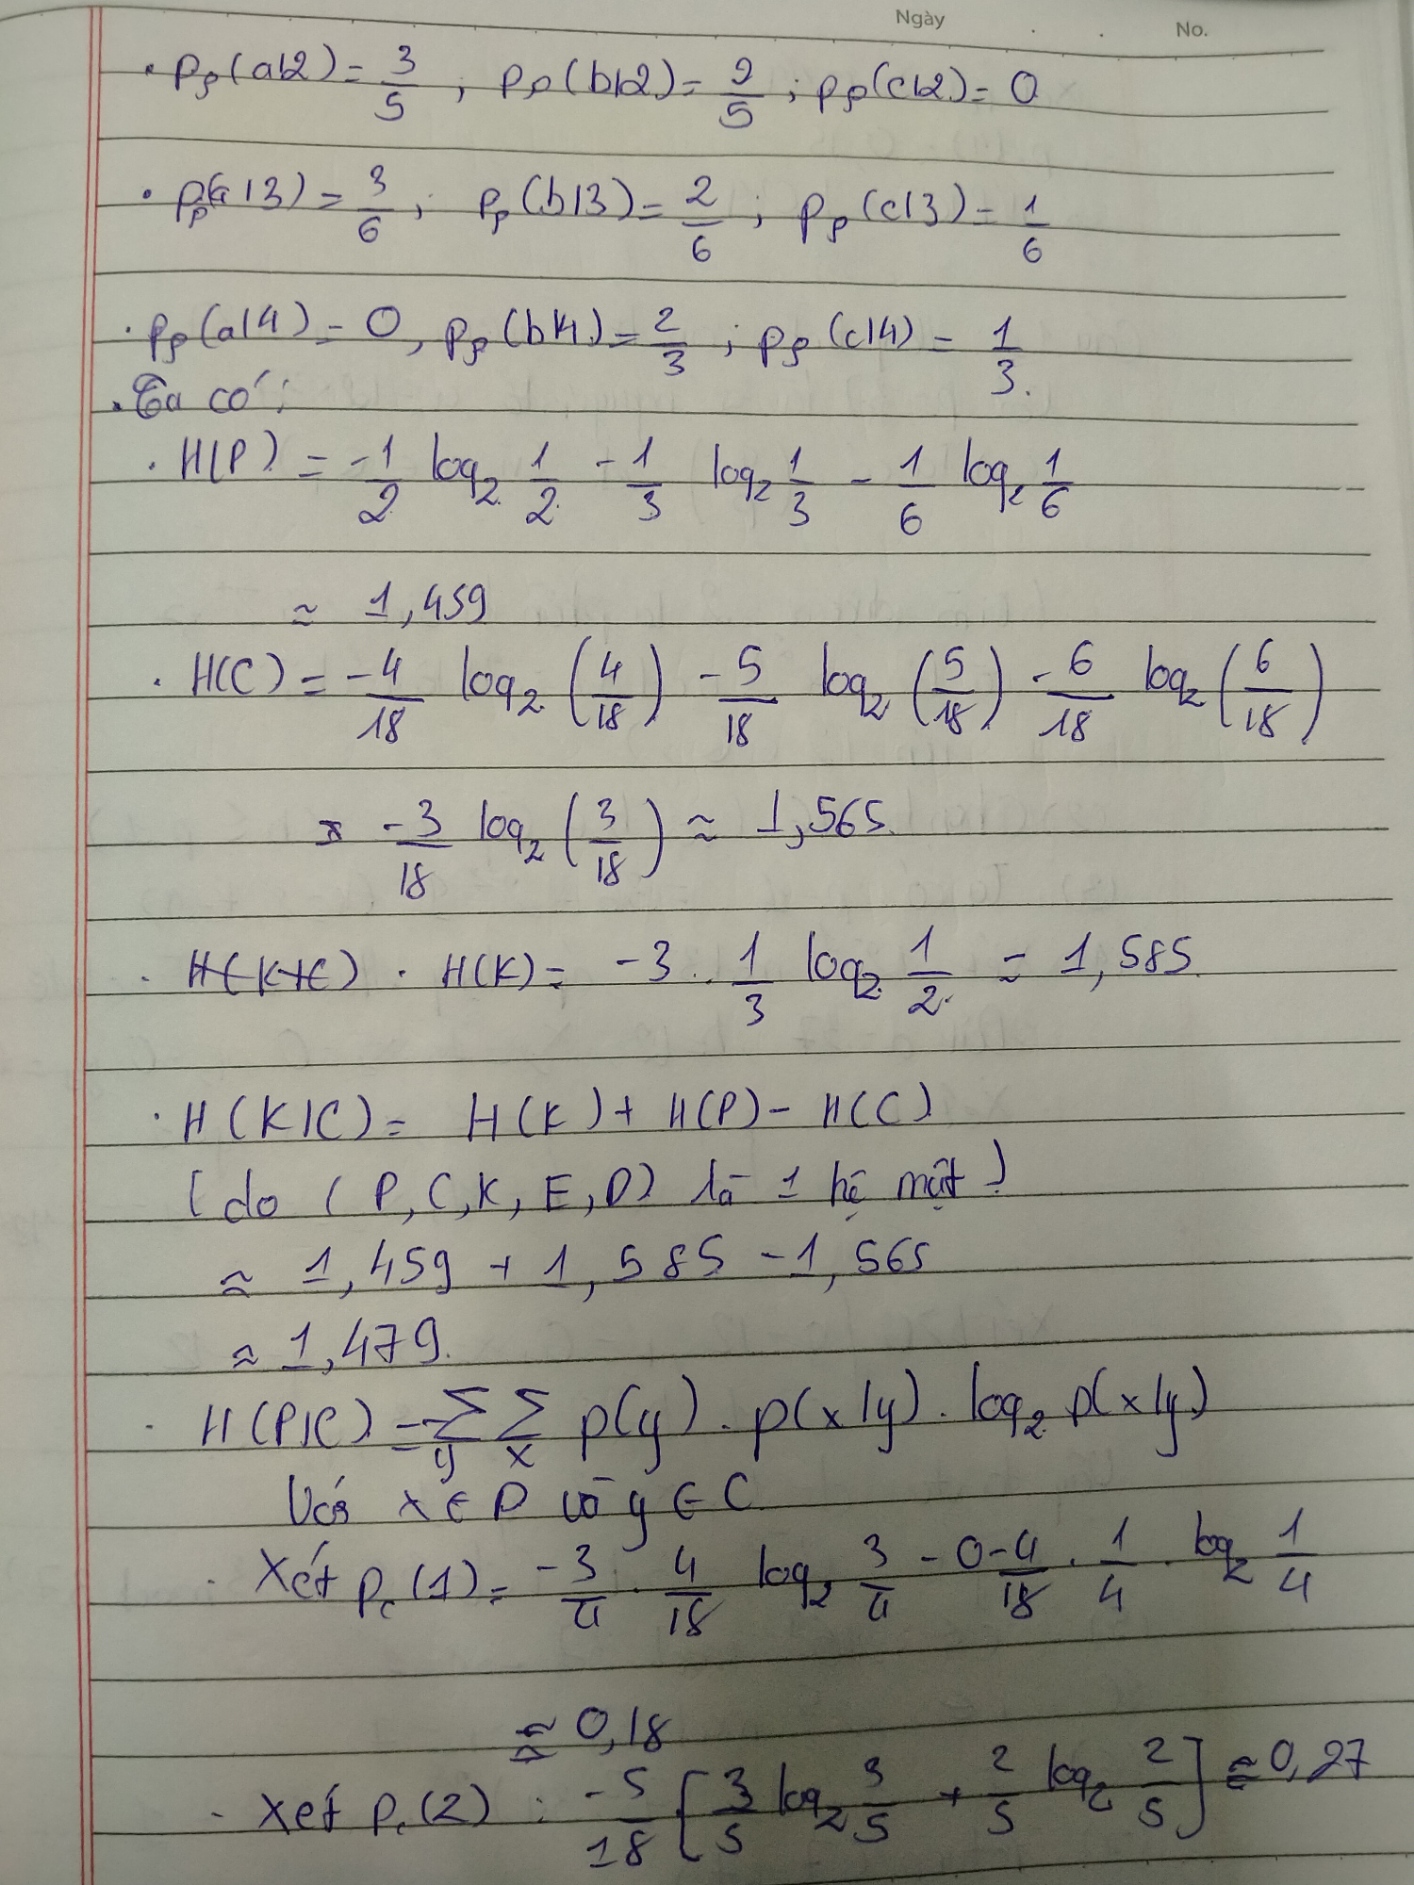 Ngày No.
· Pp(a|2) = 3/5 ; Pp(b|2) = 2/5 ; Pp(c|2) = 0
· Pp(a|3) = 3/6 ; Pp(b|3) = 2/6 ; Pp(c|3) = 1/6
· Pp(a|4) = 0, Pp(b|4) = 2/3 ; Pp(c|4) = 1/3.
· Ta có:
· H(P) = -1/2 log2 1/2 - 1/3 log2 1/3 - 1/6 log2 1/6
≈ 1,459
· H(C) = -4/18 log2 (4/18) - 5/18 log2 (5/18) - 6/18 log2 (6/18)
-3/18 log2 (3/18) ≈ 1,565.
· H(K+C) · H(K) = -3 . 1/3 log2 1/2 = 1,585.
· H(K|C) = H(K) + H(P) - H(C)
(do (P, C, K, E, D) là 1 hệ mật)
≈ 1,459 + 1,585 - 1,565
≈ 1,479.
· H(P|C) = -∑y ∑x p(y) . p(x|y) . log2 p(x|y)
Với x ∈ P và y ∈ C
· Xét Pc(1) = -3/4 . 4/18 log2 3/4 - 0 - 4/18 . 1/4 . log2 1/4
≈ 0,18
- Xét Pc(2) : -5/18 [3/5 log2 3/5 + 2/5 log2 2/5] ≈ 0,27